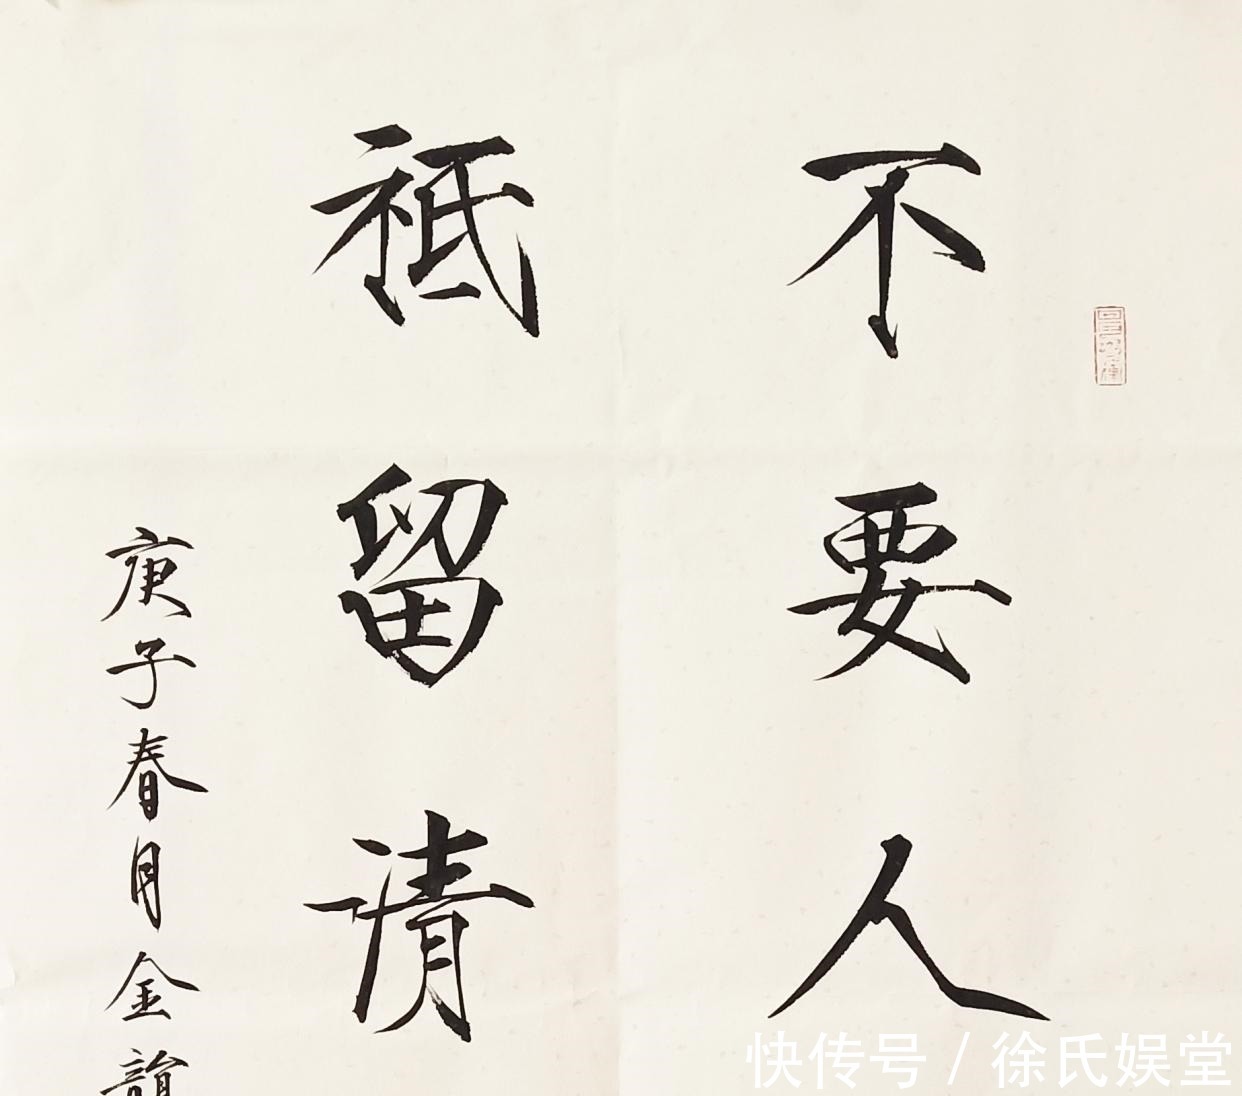 不要人
祇留清
庚子春月金
快传号/徐氏娱堂